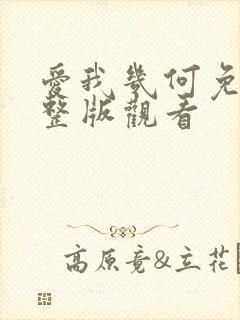 愛我幾何免
整版觀看
高原竟&立花